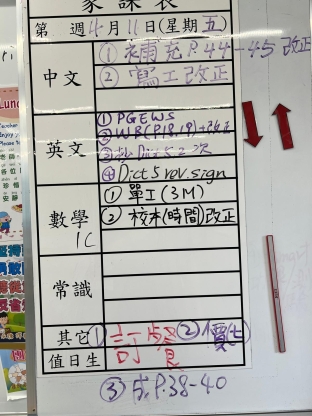 家課表
第 週 4月11日(星期五)
中文
① 補充 P.44-45 改正
② 寫工改正
英文
① PGEWS
② WB(P.18,19)+改正
③ Dict 5 2次
④ Dict 5 rev. sign
數學
1C
① 單工(3M)
② 校本(時間)改正
常識
其它
① 訂餐 ②
值日生
③ 成 P.38-40
Lunch